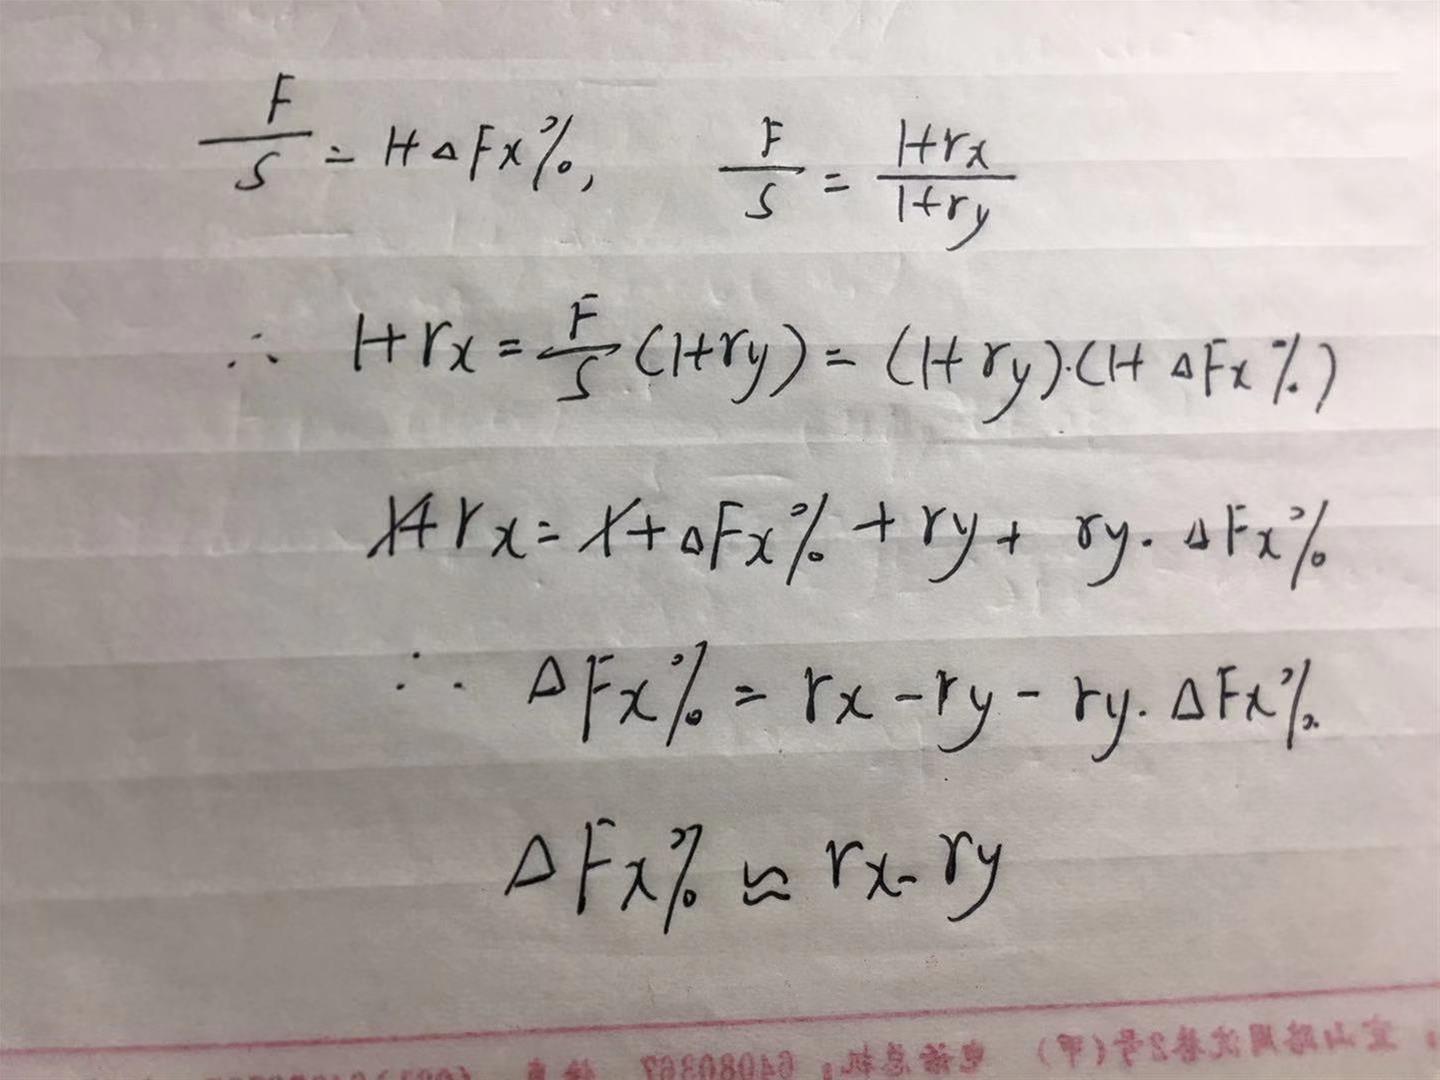 F/S = 1+ΔFx%, F/S = (1+rx)/(1+ry)
∴ 1+rx = F/S (1+ry) = (1+ry)·(1+ΔFx%)
1+rx = 1+ΔFx% + ry + ry·ΔFx%
∴ ΔFx% = rx - ry - ry·ΔFx%
ΔFx% ≈ rx - ry
宝山路周沈巷2号(甲) 电话总机: 64080367